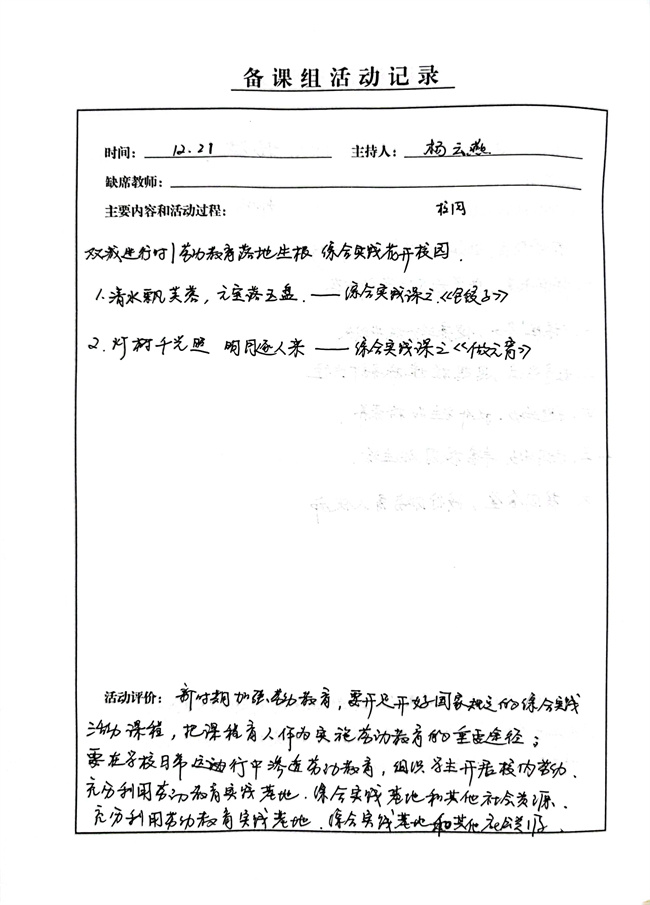 备课组活动记录
时间： 12.21 主持人： 杨云燕
缺席教师：
主要内容和活动过程： 校园
双减进行时|劳动教育落地生根 综合实践花开校园.
1.清水飘芙蓉，元宝落玉盘.——综合实践课之《包饺子》
2.灯树千光照 明月逐人来 ——综合实践课之《做元宵》
活动评价： 新时期加强劳动教育，要开足开好国家规定的综合实践
活动课程，把课程育人作为实施劳动教育的重要途径；
要在学校日常运行中渗透劳动教育，组织学生开展校内劳动.
充分利用劳动教育实践基地.综合实践基地和其他社会资源.
充分利用劳动教育实践基地.综合实践基地和其他社会资源.